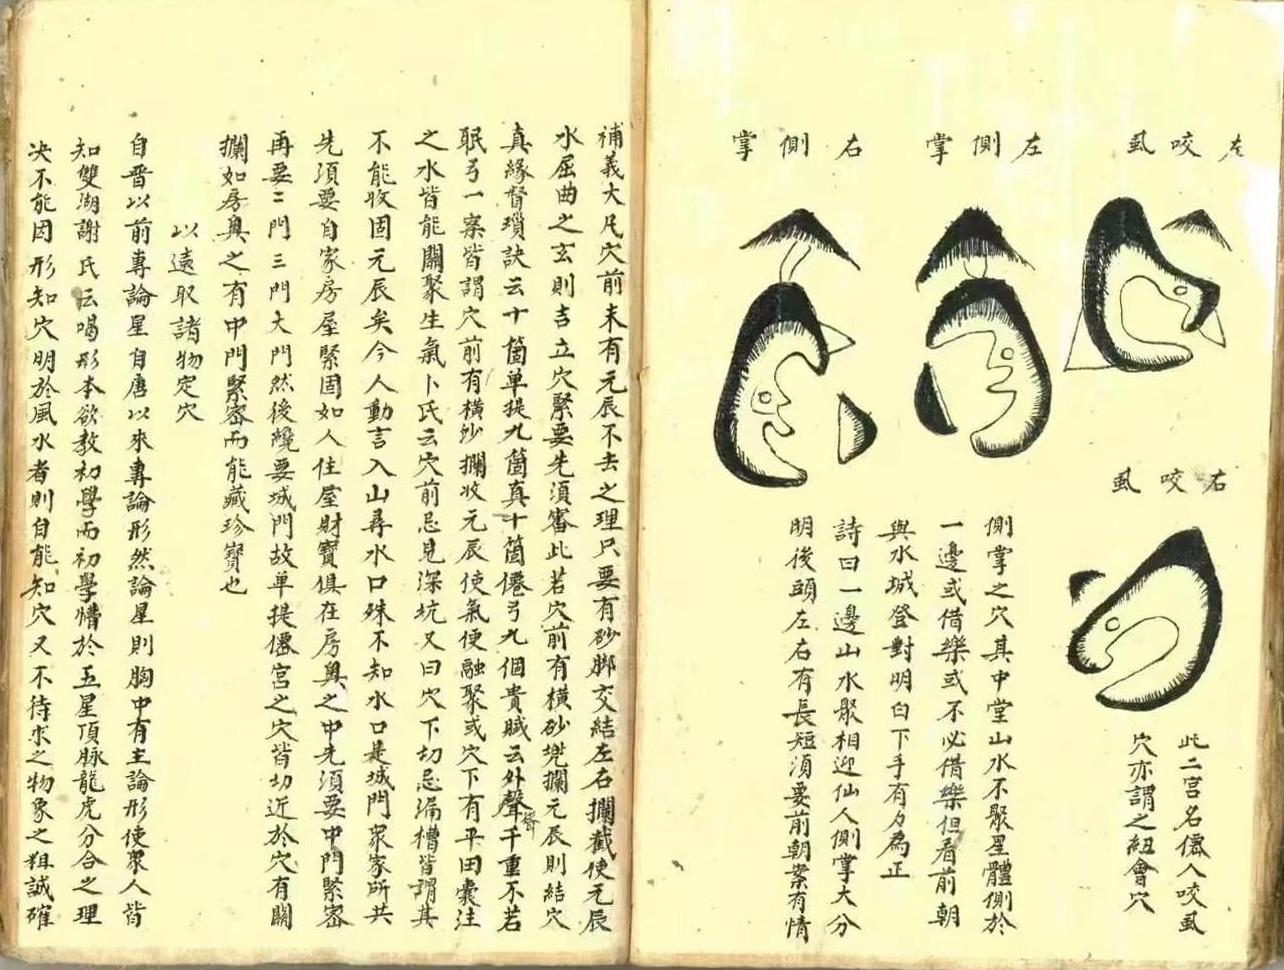 左咬虱
右咬虱
此二宮名僊人咬虱
穴亦謂之紐會穴
左側掌
右側掌
側掌之穴其中堂山水不聚星體側於
一邊或借樂或不必借樂但看前朝
與水城登對明白下手有力為正
詩曰一邊山水聚相迎仙人側掌大分
明後頭左右有長短須要前朝案有情
補義大凡穴前未有元辰不去之理只要有砂脚交結左右攔截使元辰
水屈曲之玄則吉立穴緊要先須審此若穴前有橫砂兠攔元辰則結穴
真緣督瑣訣云十箇单提九箇真十箇僊弓九個貴賦云外聲千重不若
眠弓一案皆謂穴前有橫砂攔收元辰使氣便融聚或穴下有平田囊注
之水皆能關聚生氣卜氏云穴前忌見深坑又曰穴下切忌漏槽皆謂其
不能收固元辰矣今人動言入山尋水口殊不知水口是城門衆家所共
先須要自家房屋緊固如人住屋財寶俱在房奧之中先須要中門緊密
再要二門三門大門然後纔要城門故单提僊宮之穴皆切近於穴有關
攔如房奧之有中門緊密而能藏珍寶也
以遠取諸物定穴
自晋以前專論星自唐以來專論形然論星則胸中有主論形使衆人皆
知雙湖謝氏云喝形本欲教初學而初學懵於五星頂脉龍虎分合之理
决不能因形知穴明於風水者則自能知穴又不待求之物象之粗誠確